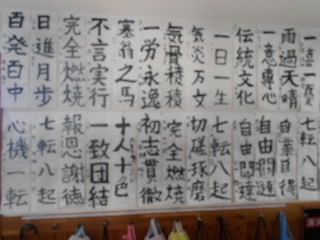 雨過天晴
一意専心
伝統文化
一日一生
気炎万丈
一労永逸
塞翁之馬
不言実行
完全燃焼
日進月歩
百発百中
七転八起
自業自得
自由闊達
自由闊達
七転八起
切磋琢磨
完全燃焼
初志貫徹
十人十色
一致団結
報恩謝徳
七転八起
心機一転